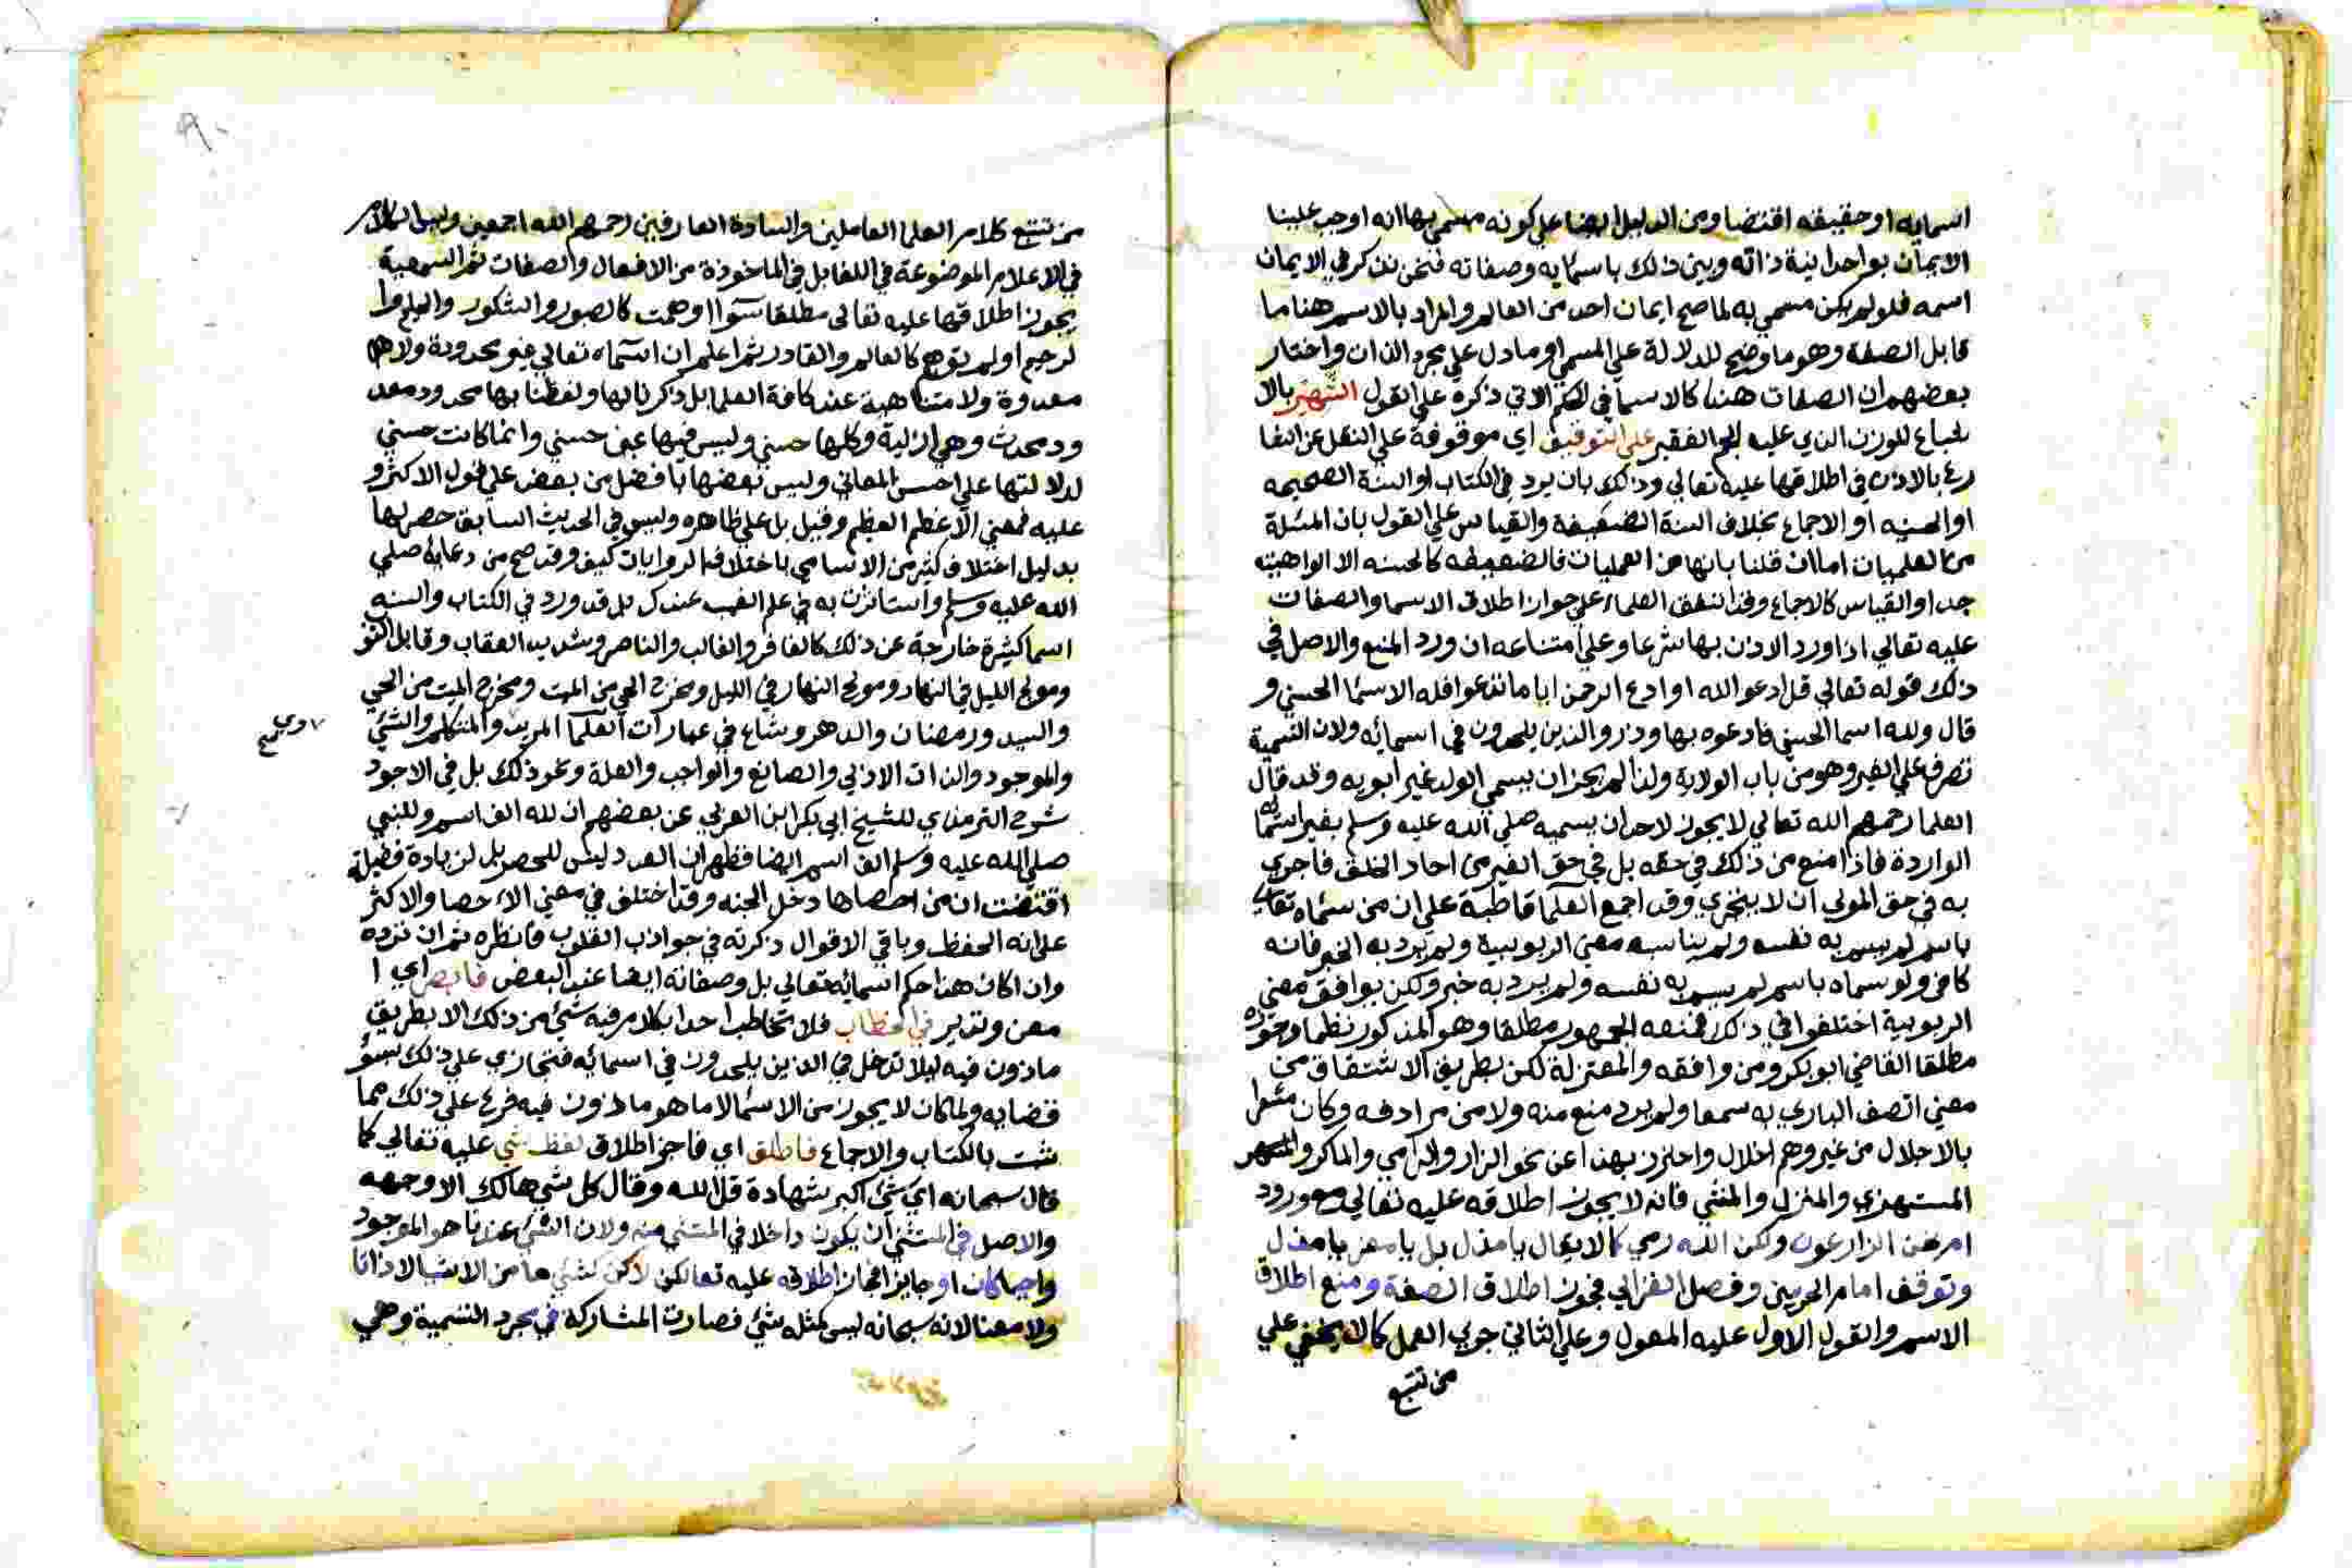 اسمايه او حقيقه اقتضا ومن الدليل ايضا علي كونه مسمي بها انه اوجب علينا
الايمان بواحدانية ذاته وبين ذلك باسمايه وصفاته فنحن نذكر في الايمان
اسمه فلو لم يكن مسمي به لما صح ايمان احد من العالم والمراد بالاسم هنا ما
قابل الصفة وهو ما وضح للدلالة علي المسمي او ما دل علي مجرد الذات واختار
بعضهم ان الصفات هنا كالاسما في الاتي ذكره علي القول الشهير بالا
شباع للوزن الذي عليه الفقير علي التوقيف اي موقوفة علي النقل عن الشا
رع بالاذن في اطلاقها عليه تعالي وذلك بان يرد في الكتاب او السنة الصحيحه
او الحسنه او الاجماع بخلاف السنة الضعيفة والقياس علي القول بان المسئلة
من العلميات اما ان قلنا بانها من العمليات فالضعيفه كالحسنه الا الواهية
جدا والقياس كالاجماع وقد اتفق العلماء علي جواز اطلاق الاسما والصفات
عليه تعالي اذا ورد الاذن بها شرعا وعلي امتناعه ان ورد المنع والاصل في
ذلك قوله تعالي قل ادعو الله او ادع الرحمن ايا ما تدعوا فله الاسما الحسني و
قال ولله اسما الحسني فادعوه بها وذرو الذين يلحدون في اسمائه ولان التسمية
تصرف علي الغير وهو من باب الولاية ولذا لم يجز ان يسمي الولد غير ابويه وقد قال
العلما رحمهم الله تعالي لا يجوز لاحد ان يسميه صلي الله عليه وسلم بغير اسمائه
الواردة فاذا منع من ذلك في حقه بل في حق الغير من احاد الخلق فاحري
به في حق المولي ان لا يتجزي وقد اجمع العلما قاطبة علي ان من سماه تعالي
باسم لم يسم به نفسه ولم يناسبه معني الربوبية ولم يرد به الخبر فانه
كافر ولو سماه باسم لم يسم به نفسه ولم يرد به خبر ولكن يوافق معني
الربوبية اختلفوا في ذلك فمنعه الجمهور مطلقا وهو المذكور نظما وجوزه
مطلقا القاضي ابو بكر ومن وافقه والمعتزلة لكن بطريق الاشتقاق من
معني اتصف الباري به سمعا ولم يرد منع منه ولا من مرادفه وكان مشعرا
بالاجلال من غير وهم اخلال واحترز بهذا عن نحو الزار والرامي والماكر
المستهزي والمنزل والمنشي فانه لا يجوز اطلاقه عليه تعالي مع ورود
ام نحن الزارعون ولكن الله رمي كما لا يقال يا مذل بل يا معز يا مذل
وتوقف امام الحرمين وفصل الغزالي فجوز اطلاق الصفة ومنع اطلاق
الاسم والقول الاول عليه المعول وعلي الثاني جري العمل كما لا يخفي علي
من تتبع
٩٠
من تتبع كلام العلما العاملين والسادة العارفين رحمهم الله اجمعين وليس الكلام
في الاعلام الموضوعة في اللغا بل في الماخوذة من الافعال والصفات ثم السمعية
يجوز اطلاقها عليه تعالي مطلقا سوا اوهمت كالصبور والشكور والحليم وا
لرحيم او لم توهم كالعالم والقادر ثم اعلم ان اسماه تعالي غير محدودة ولا
معدودة ولا متناهية عند كافة العلما بل ذكرنا لها ولفظنا بها محدود معد
ود محدث وهي ازلية وكلها حسني وليس فيها غير حسني وانما كانت حسني
لدلالتها علي احسن المعاني وليس بعضها بافضل من بعض علي قول الاكثر و
عليه فمعني الاعظم العظيم وقيل بل علي ظاهره وليس في الحديث السابق حصر لها
بدليل اختلاف كثير من الاسامي باختلاف الروايات كيف وقد صح من دعائه صلي
الله عليه وسلم واستاثرت به في علم الغيب عندك بل قد ورد في الكتاب والسنه
اسما كثيرة خارجة عن ذلك كالغافر والغالب والناصر وشديد العقاب وقابل التو
ومولج الليل في النهار ومولج النهار في الليل ومخرج الحي من الميت ومخرج الميت من الحي
والسيد ورمضان والدهر وشاع في عبارات العلما المريد والمتكلم والشئ
والموجود والذات الازلي والصانع والواجب والعلة ونحو ذلك بل في الاجود
شرح الترمذي للشيخ ابي بكر ابن العربي عن بعضهم ان لله الف اسم وللنبي
صلي الله عليه وسلم الف اسم ايضا فظهر ان العدد ليس للحصر بل لزيادة فضيلة
اقتضت ان من احصاها دخل الجنه وقد اختلف في معني الاحصا والاكثر
علي انه الحفظ وباقي الاقوال ذكرته في جواذب القلوب فانظره ثم ان تزده
وان اكان هذا حكم اسمائه تعالي بل وصفاته ايضا عند البعض اي ا
معن وتدبر في الخطاب فلا تخاطب احدا بكلام فيه شئ من ذلك الا بطريق
ماذون فيه ليلا تدخل في الذين يلحدون في اسمائه فتجازي علي ذلك بسؤ
قضايه ولما كان لا يجوز من الاسما الا ما هو ماذون فيه فرع علي ذلك مما
ثبت بالكتاب والاجماع فاطلق اي فاجز اطلاق لفظ شي عليه تعالي كما
قال سبحانه اي شئ اكبر شهادة قل الله وقال كل شي هالك الا وجهه
والاصل في المستثني ان يكون داخلا في المستثني منه ولان الشئ عندنا هو الموجود
واجبا كان او جايزا فجاز اطلاقه عليه تعالي لكن لا كشئ ما من الاشيا لا ذاتا
ولا معنا لانه سبحانه ليس كمثله شئ فصارت المشاركة في مجرد التسمية وهي